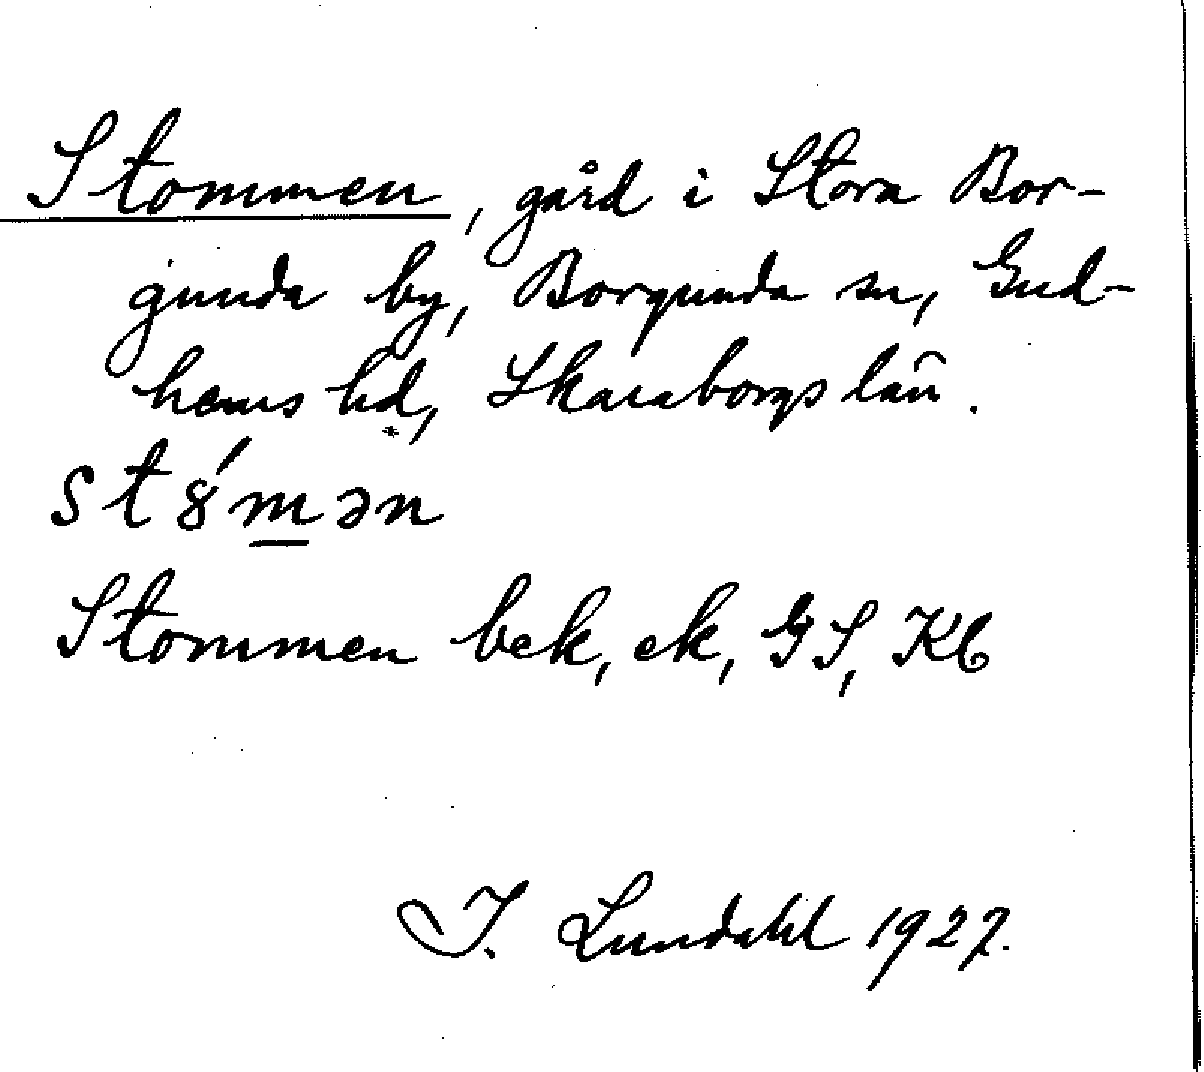 Stommen, gård i Stora Bor-
gunda by, Borgunda sn, Gud-
hems hd, Skaraborgs län.
st8́m̲ən
Stommen bek, ek, GS, Kb
I. Lundahl 1927.